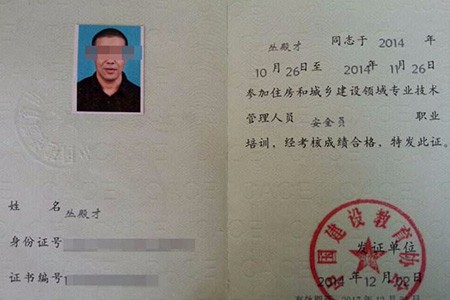 姓 名 丛殿才
身份证号
证书编号 1
丛殿才 同志于 2014 年
10 月 26 日至 2014 年 11 月 26 日
参加住房和城乡建设领域专业技术
管理人员 安全员 职业
培训，经考核成绩合格，特发此证。
中国建设教育协会
发证单位
12 月 02 日